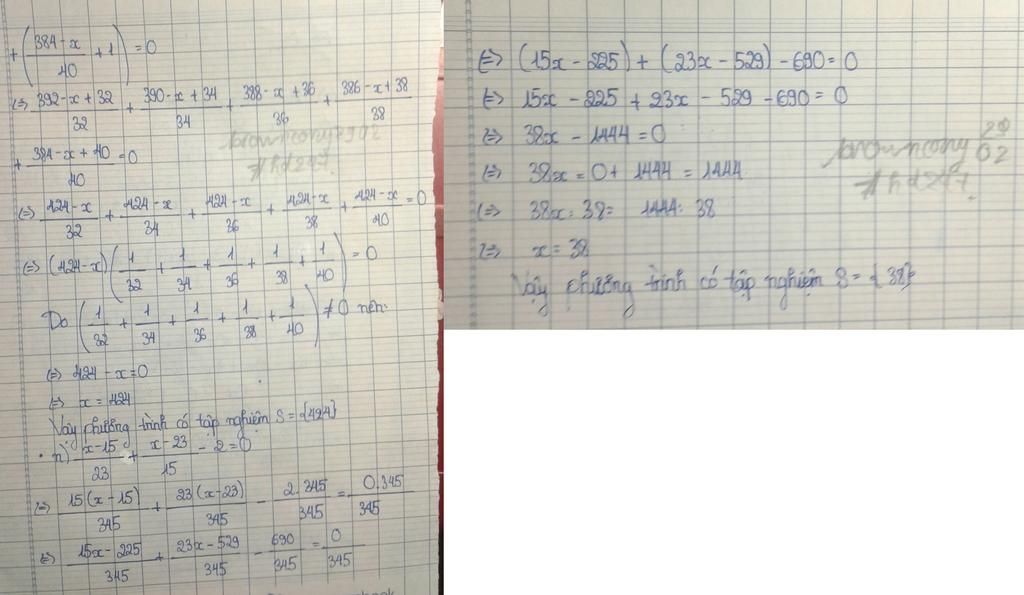 + (384-x/40 + 1) = 0
(=) 392-x+32/32 + 390-x+34/34 + 388-x+36/36 + 386-x+38/38
+ 384-x+40/40 = 0
(=) 424-x/32 + 424-x/34 + 424-x/36 + 424-x/38 + 424-x/40 = 0
(=) (424-x) (1/32 + 1/34 + 1/36 + 1/38 + 1/40) = 0
Do (1/32 + 1/34 + 1/36 + 1/38 + 1/40) ≠ 0 nên:
(=) 424 - x = 0
(=) x = 424
Vậy phương trình có tập nghiệm S = {424}
• n) x-15/23 + x-23/15 - 2 = 0
(=) 15(x-15)/345 + 23(x-23)/345 - 2.345/345 = 0.345/345
(=) 15x-225/345 + 23x-529/345 - 690/345 = 0/345
(=) (15x - 225) + (23x - 529) - 690 = 0
(=) 15x - 225 + 23x - 529 - 690 = 0
(=) 38x - 1444 = 0
(=) 38x = 0 + 1444 = 1444
(=) 38x : 38 = 1444 : 38
(=) x = 38
Vậy phương trình có tập nghiệm S = {38}